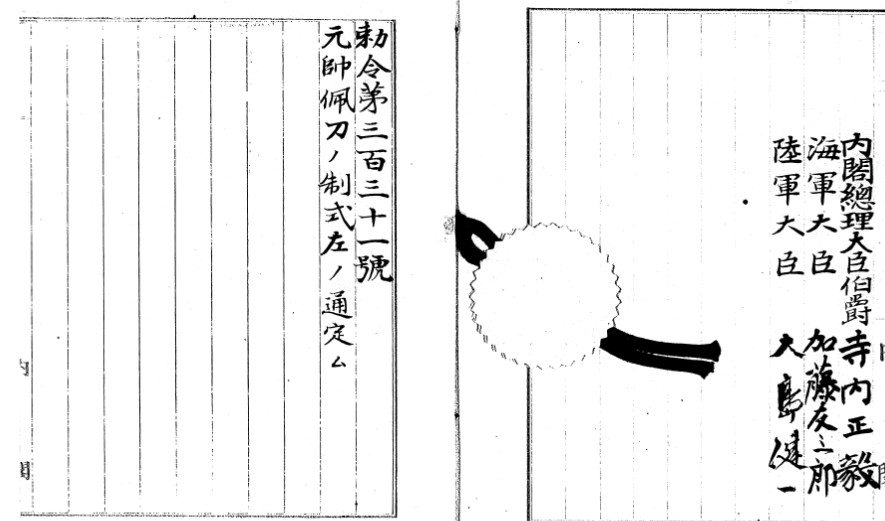 内閣總理大臣伯爵寺内正毅
海軍大臣 加藤友三郎
陸軍大臣 大島健一
勅令第三百三十一號
元帥佩刀ノ制式左ノ通定ム
内閣